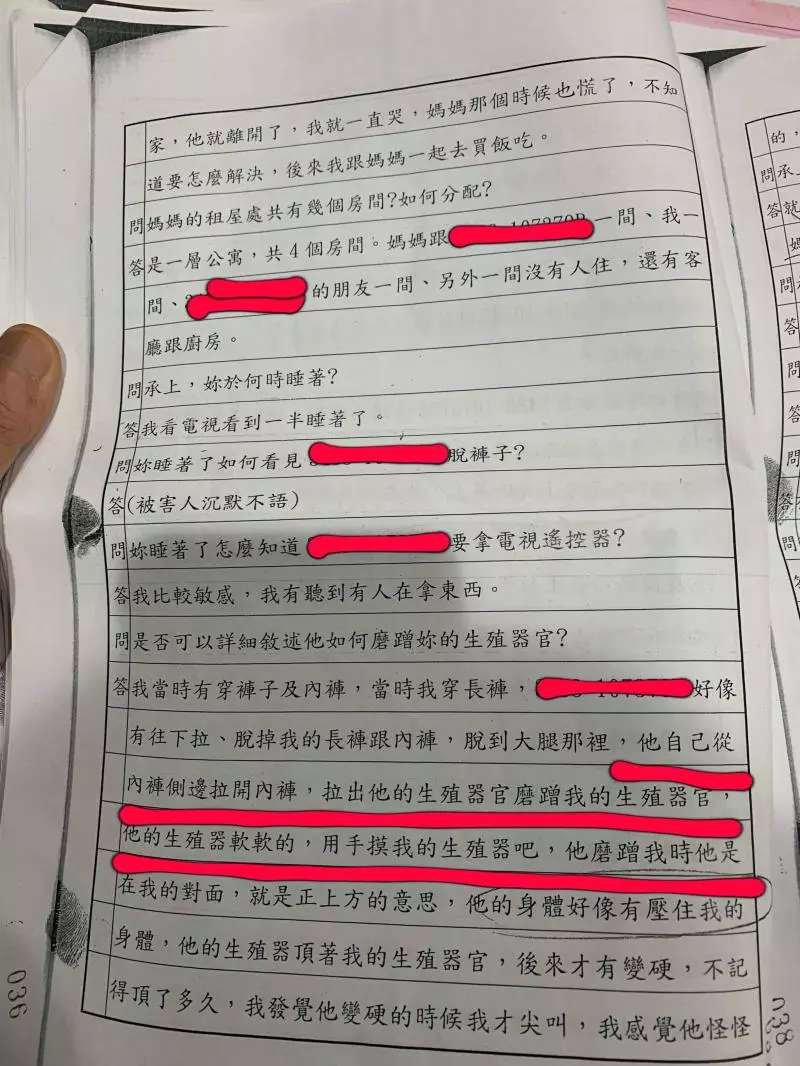 家，他就離開了，我就一直哭，媽媽那個時候也慌了，不知
道要怎麼解決，後來我跟媽媽一起去買飯吃。
問媽媽的租屋處共有幾個房間?如何分配?
答是一層公寓，共4個房間。媽媽跟 一間、我一
間、 的朋友一間、另外一間沒有人住，還有客
廳跟廚房。
問承上，妳於何時睡著?
答我看電視看到一半睡著了。
問妳睡著了如何看見 脫褲子?
答(被害人沉默不語)
問妳睡著了怎麼知道 要拿電視遙控器?
答我比較敏感，我有聽到有人在拿東西。
問是否可以詳細敘述他如何磨蹭妳的生殖器官?
答我當時有穿褲子及內褲，當時我穿長褲， 好像
有往下拉、脫掉我的長褲跟內褲，脫到大腿那裡，他自己從
內褲側邊拉開內褲，拉出他的生殖器官磨蹭我的生殖器官，
他的生殖器軟軟的，用手摸我的生殖器吧，他磨蹭我時他是
在我的對面，就是正上方的意思，他的身體好像有壓住我的
身體，他的生殖器頂著我的生殖器官，後來才有變硬，不記
得頂了多久，我發覺他變硬的時候我才尖叫，我感覺他怪怪
036
的，
問承上
答就
問
答
問
答
問
答
038